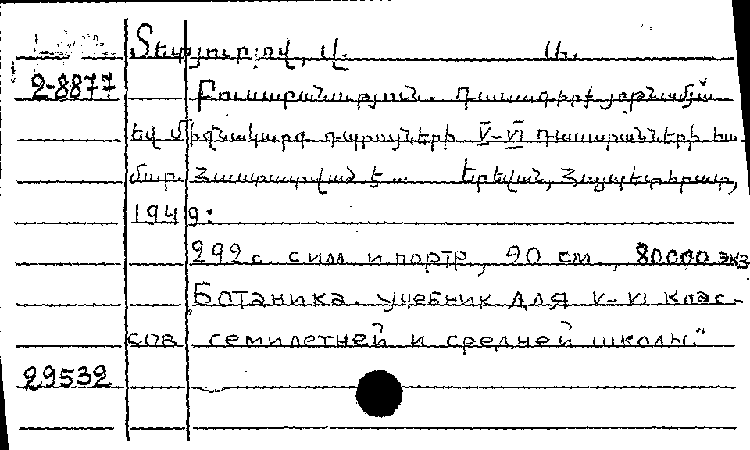 Տետյուրյով, Վ. Ա.
2-8877 Բուսաբանություն. Դասագիրք յոթնամյա
եվ միջնակարգ դպրոցների V-VI դասարանների հա-
մար. Հաստատված է... Երեվան, Հայպետհրատ,
1949:
292 с. с илл. и портр., 20 см., 80000 экз
Ботаника. Учебник для V-VI клас-
сов семилетней и средней школы."
29532